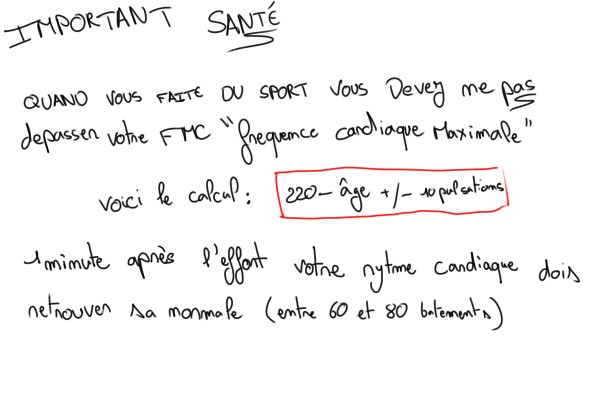 IMPORTANT SANTÉ
QUAND VOUS FAITE DU SPORT VOUS Devez ne pas
depasser votre FMC "frequence cardiaque Maximale"
voici le calcul : 220 - âge +/- 10 pulsations
1 minute après l'effort votre rytme cardiaque dois
retrouver sa normale (entre 60 et 80 batements)